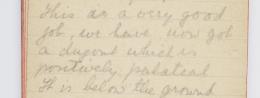 This is a very good
job, we have now got
a dugout which is
positively palatial
It is below the ground